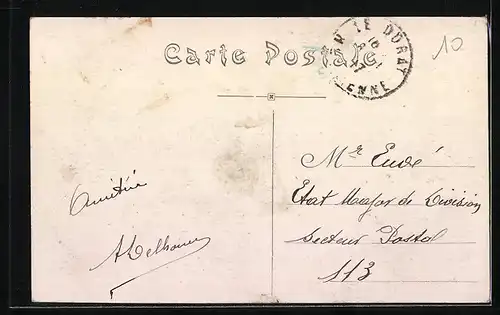 Carte Postale
LE DORAT
10
Mr Eudé
Etat Major de Division
Secteur Postal
113
Amitiés